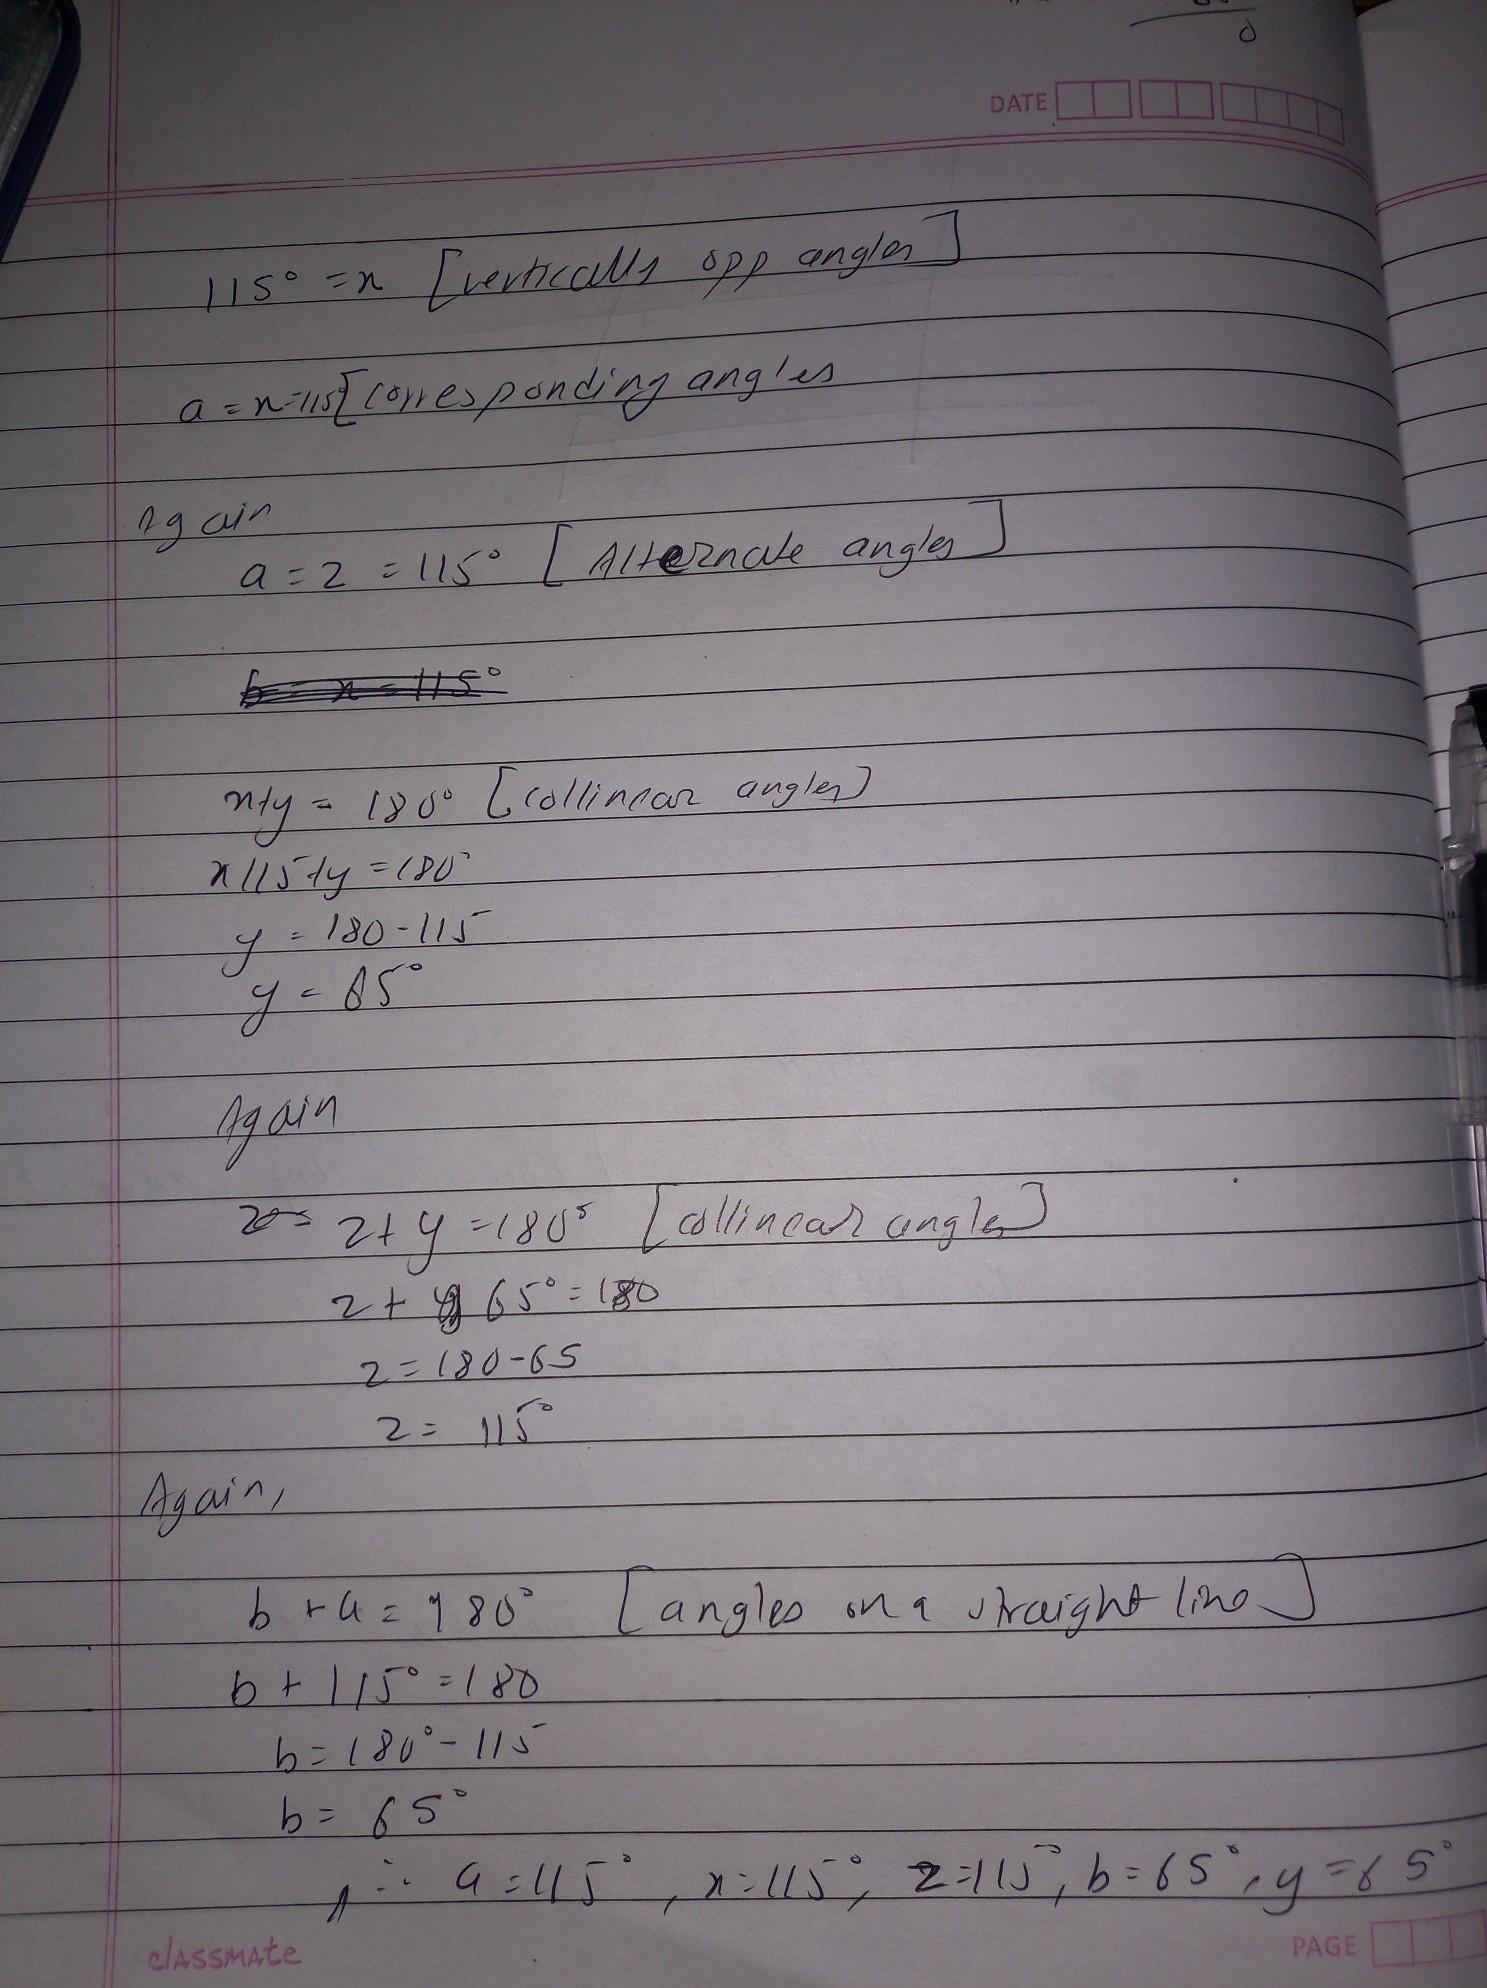 DATE
115° = x [vertically opp angles]
a = x = 115 [corresponding angles
Again
a = z = 115° [Alternate angles]
b = x = 115°
x+y = 180° [collinear angles]
x 115+y = 180
y = 180-115
y = 65°
Again
z+y = 180° [collinear angles]
z + 65° = 180
z = 180-65
z = 115°
Again,
b + a = 180° [angles on a straight line]
b + 115° = 180
b = 180° - 115
b = 65°
∴ a = 115°, x = 115°, z = 115°, b = 65°, y = 65°
classmate
PAGE